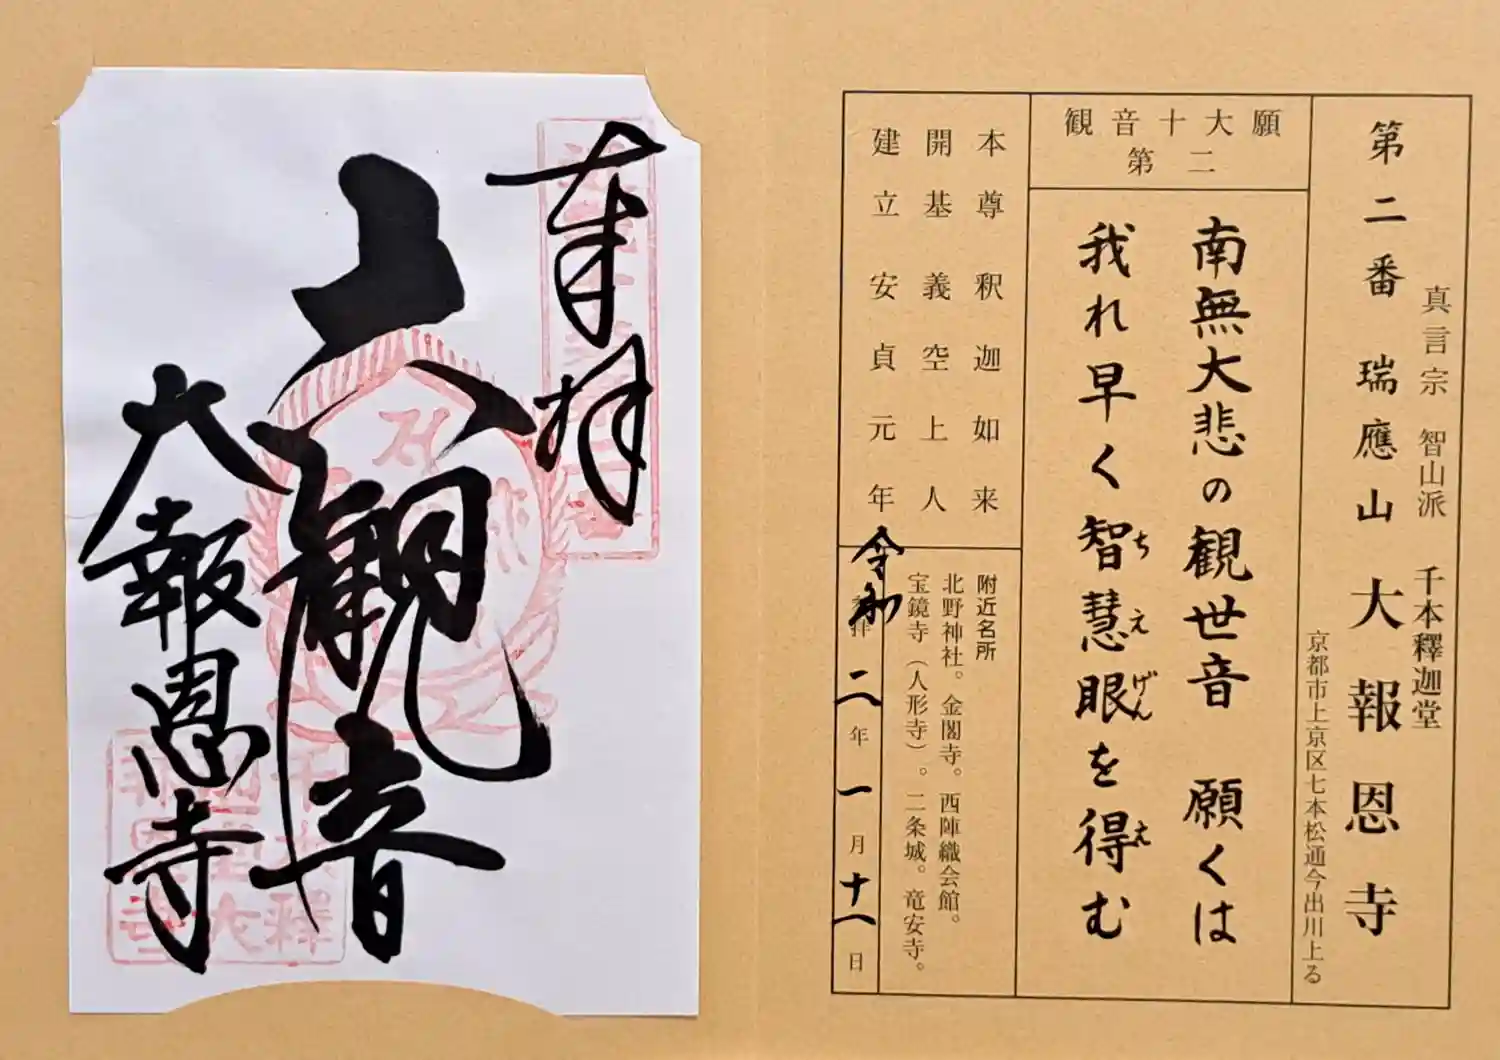 第二番 瑞應山 大報恩寺
真言宗 智山派 千本釋迦堂
京都市上京区七本松通今出川上る
観音十大願
第二
南無大悲の観世音 願くは
我れ早く智慧眼を得む
ちえげん え
本尊 釈迦如来
開基 義空上人
建立 安貞元年
附近名所
北野神社。金閣寺。西陣織会館。
宝鏡寺（人形寺）。二条城。竜安寺。
令和二年一月十一日
奉拝
六観音
大報恩寺
千本釋
迦堂大
報恩寺